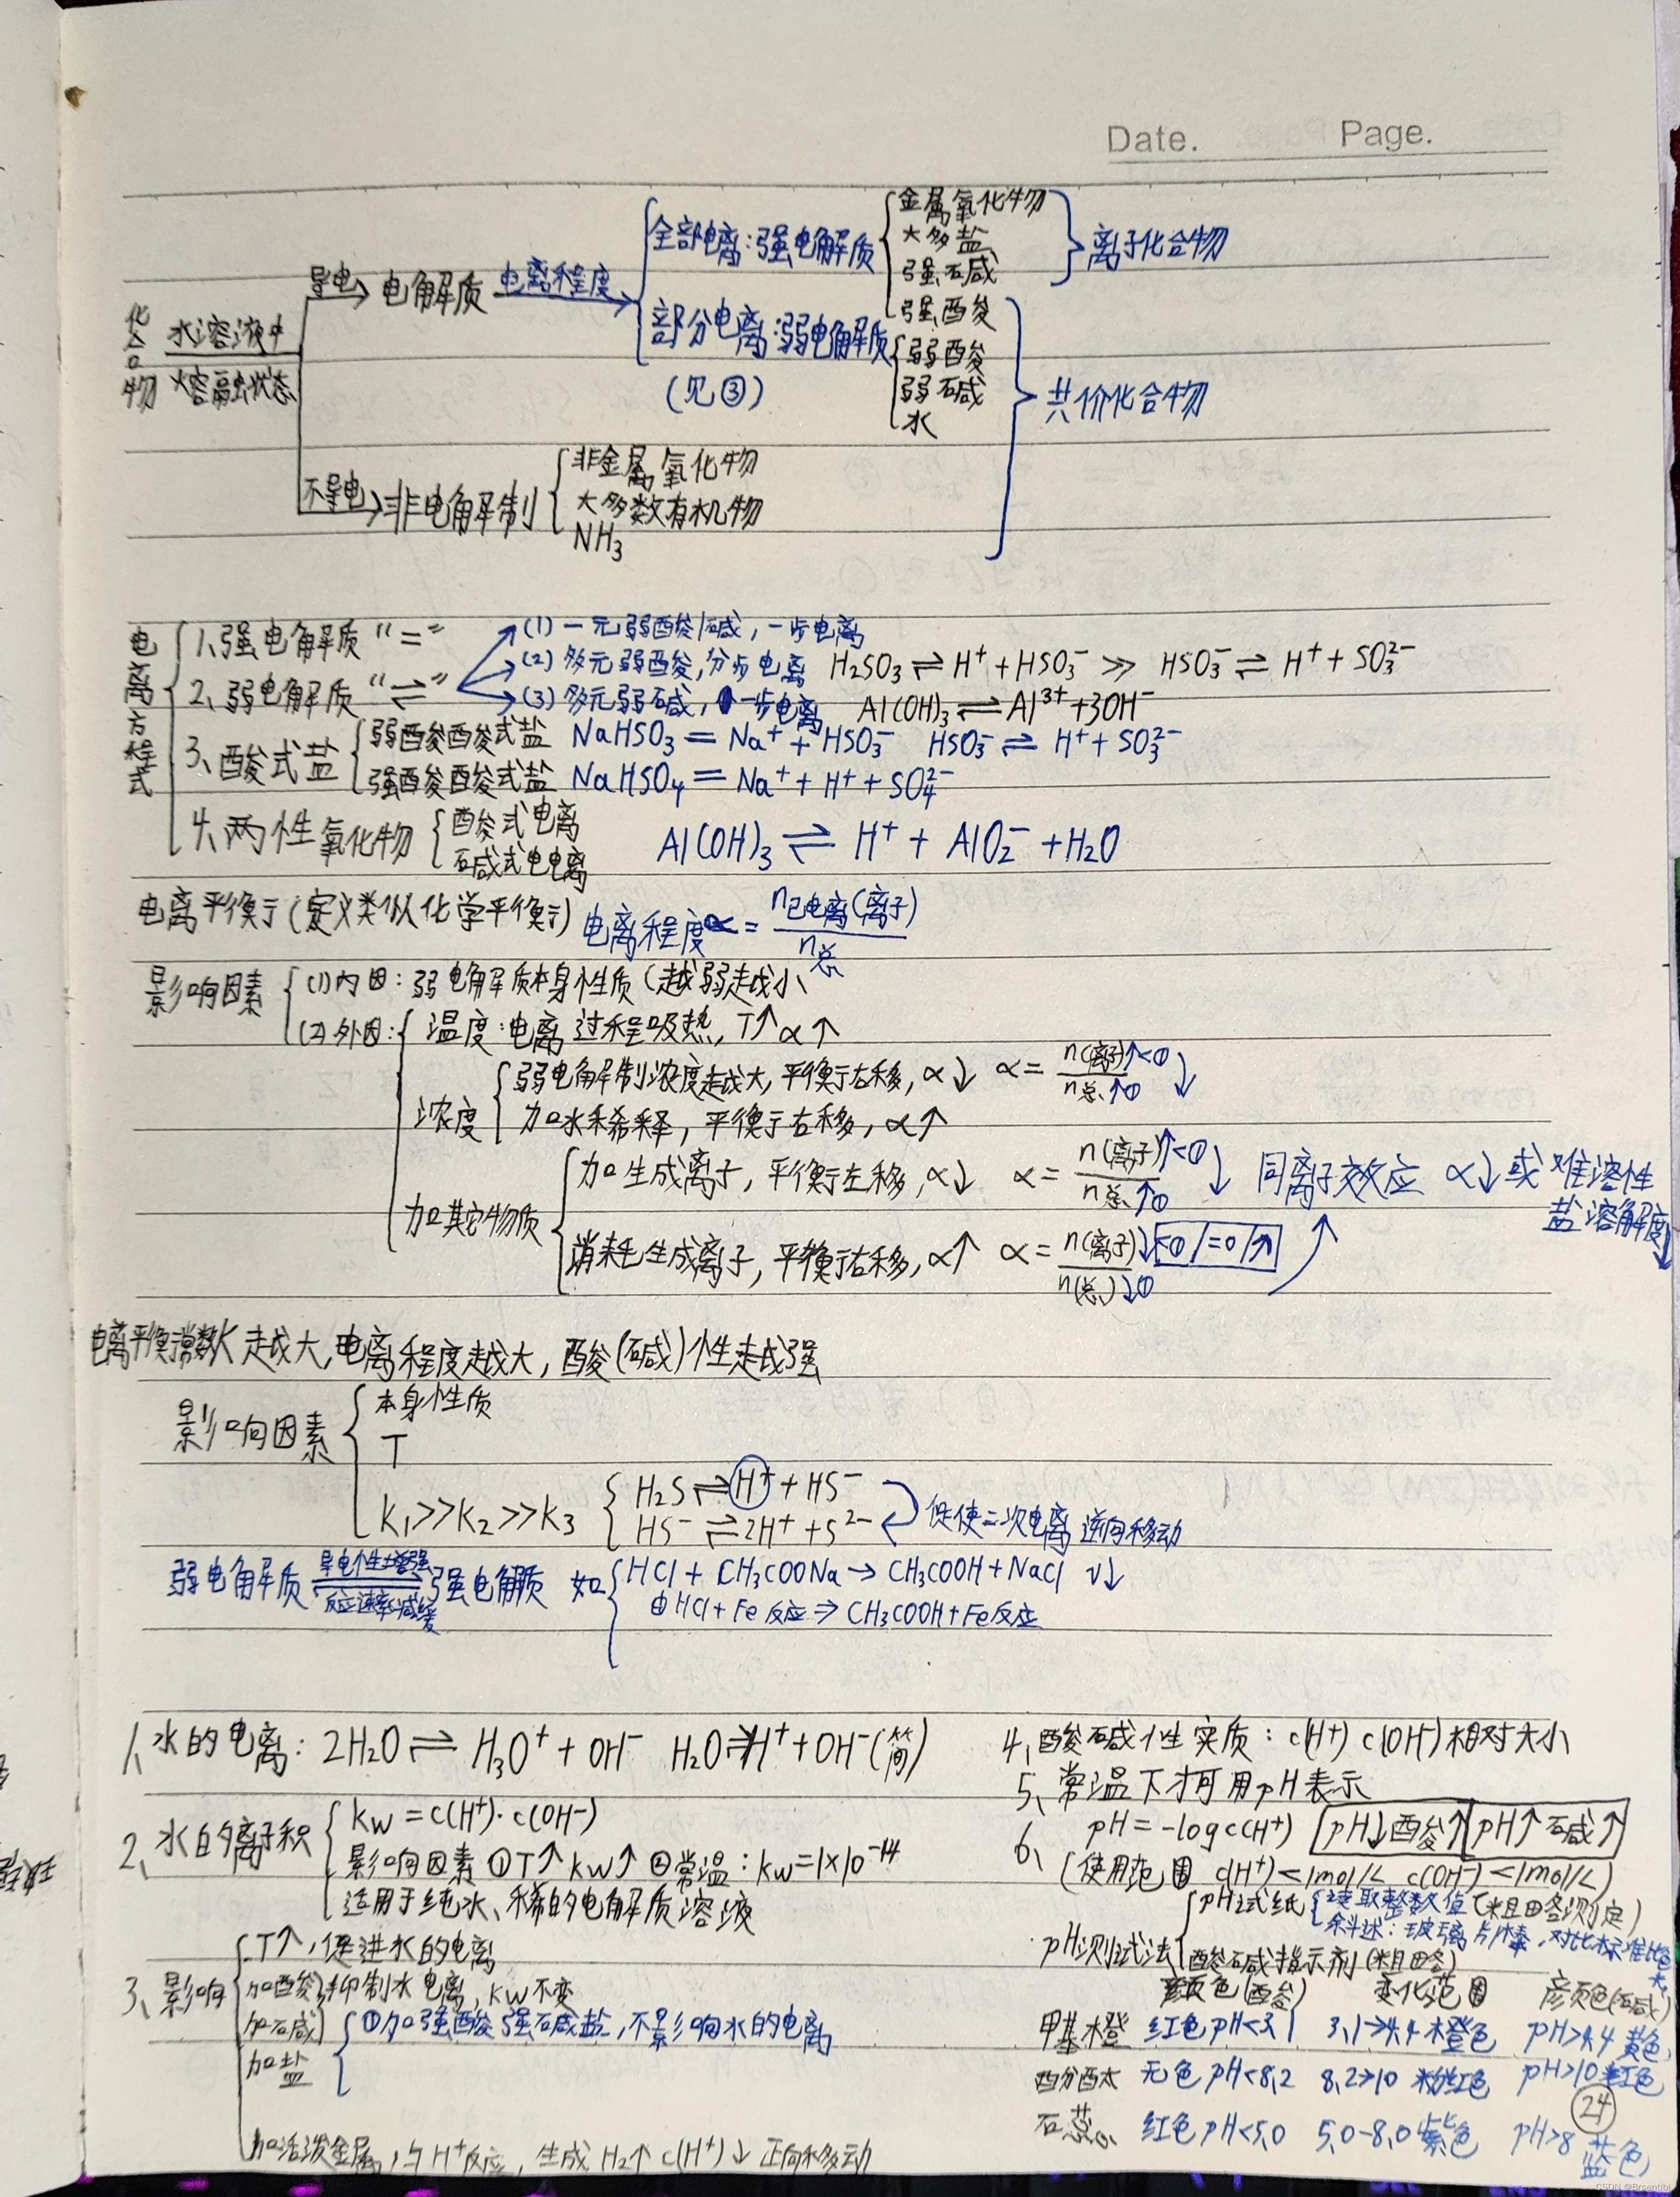 Date. Page.
化合物 水溶液中 熔融状态
导电 电解质 电离程度
全部电离:强电解质 金属氧化物 大多盐 强碱 离子化合物
强酸
部分电离:弱电解质 弱酸 弱碱 水 共价化合物
(见③)
不导电 非电解制 非金属氧化物 大多数有机物 NH₃
电离方程式
1、强电解质 “=”
2、弱电解质 “⇌”
(1) 一元弱酸/碱,一步电离
(2) 多元弱酸,分步电离 H₂SO₃ ⇌ H⁺ + HSO₃⁻ ≫ HSO₃⁻ ⇌ H⁺ + SO₃²⁻
(3) 多元弱碱,一步电离 Al(OH)₃ ⇌ Al³⁺ + 3OH⁻
3、酸式盐
弱酸酸式盐 NaHSO₃ = Na⁺ + HSO₃⁻ HSO₃⁻ ⇌ H⁺ + SO₃²⁻
强酸酸式盐 NaHSO₄ = Na⁺ + H⁺ + SO₄²⁻
4、两性氧化物 酸式电离 碱式电电离 Al(OH)₃ ⇌ H⁺ + AlO₂⁻ + H₂O
电离平衡(定义类似化学平衡) 电离程度α = n已电离(离子) / n总
影响因素
(1)内因:弱电解质本身性质(越弱越小
(2)外因: 温度:电离过程吸热,T↑ α↑
浓度
弱电解制浓度越大,平衡右移,α↓ α = n(离子)↑<① / n总↑① ↓
加水稀释,平衡右移,α↑
加其它物质
加生成离子,平衡左移,α↓ α = n(离子)↑<① / n总↑① ↓ 同离子效应 α↓或难溶性
盐溶解度↓
消耗生成离子,平衡右移,α↑ α = n(离子)↓ <①/=0/↑ / n(总)↓①
电离平衡常数K 越大,电离程度越大,酸(碱)性越强
影响因素
本身性质
T
K₁>>K₂>>K₃
H₂S ⇌ H⁺ + HS⁻
HS⁻ ⇌ 2H⁺ + S²⁻ 促使二次电离逆向移动
弱电解质 导电性增强 反应速率减缓 强电解质 如
HCl + CH₃COONa → CH₃COOH + NaCl
由HCl+Fe反应 ⇒ CH₃COOH+Fe反应
1、水的电离: 2H₂O ⇌ H₃O⁺ + OH⁻ H₂O ⇌ H⁺ + OH⁻(简)
2、水的离子积
Kw = c(H⁺)·c(OH⁻)
影响因素 ①T↑ Kw↑ ②常温:Kw=1×10⁻¹⁴
适用于纯水、稀的电解质溶液
3、影响
T↑,促进水的电离
加酸 加碱 抑制水电离,Kw不变
加盐 ①加强酸强碱盐,不影响水的电离
加活泼金属,与H⁺反应,生成H₂↑ c(H⁺)↓ 正向移动
4、酸碱性实质: c(H⁺) c(OH⁻)相对大小
5、常温下才可用pH表示
6、 pH = -log c(H⁺) pH↓酸↑ pH↑碱↑
(使用范围 c(H⁺)<1mol/L c(OH⁻)<1mol/L)
pH测试法
pH试纸 读取整数值(粗略测定)
叙述:玻璃片 ,对比标准比色
酸碱指示剂(粗略)
颜色(酸) 变化范围 颜色(碱)
甲基橙 红色pH<3.1 3.1→4.4 橙色 pH>4.4 黄色
酚酞 无色pH<8.2 8.2→10 粉红色 pH>10 红色
石蕊 红色pH<5.0 5.0-8.0紫色 pH>8 蓝色
24